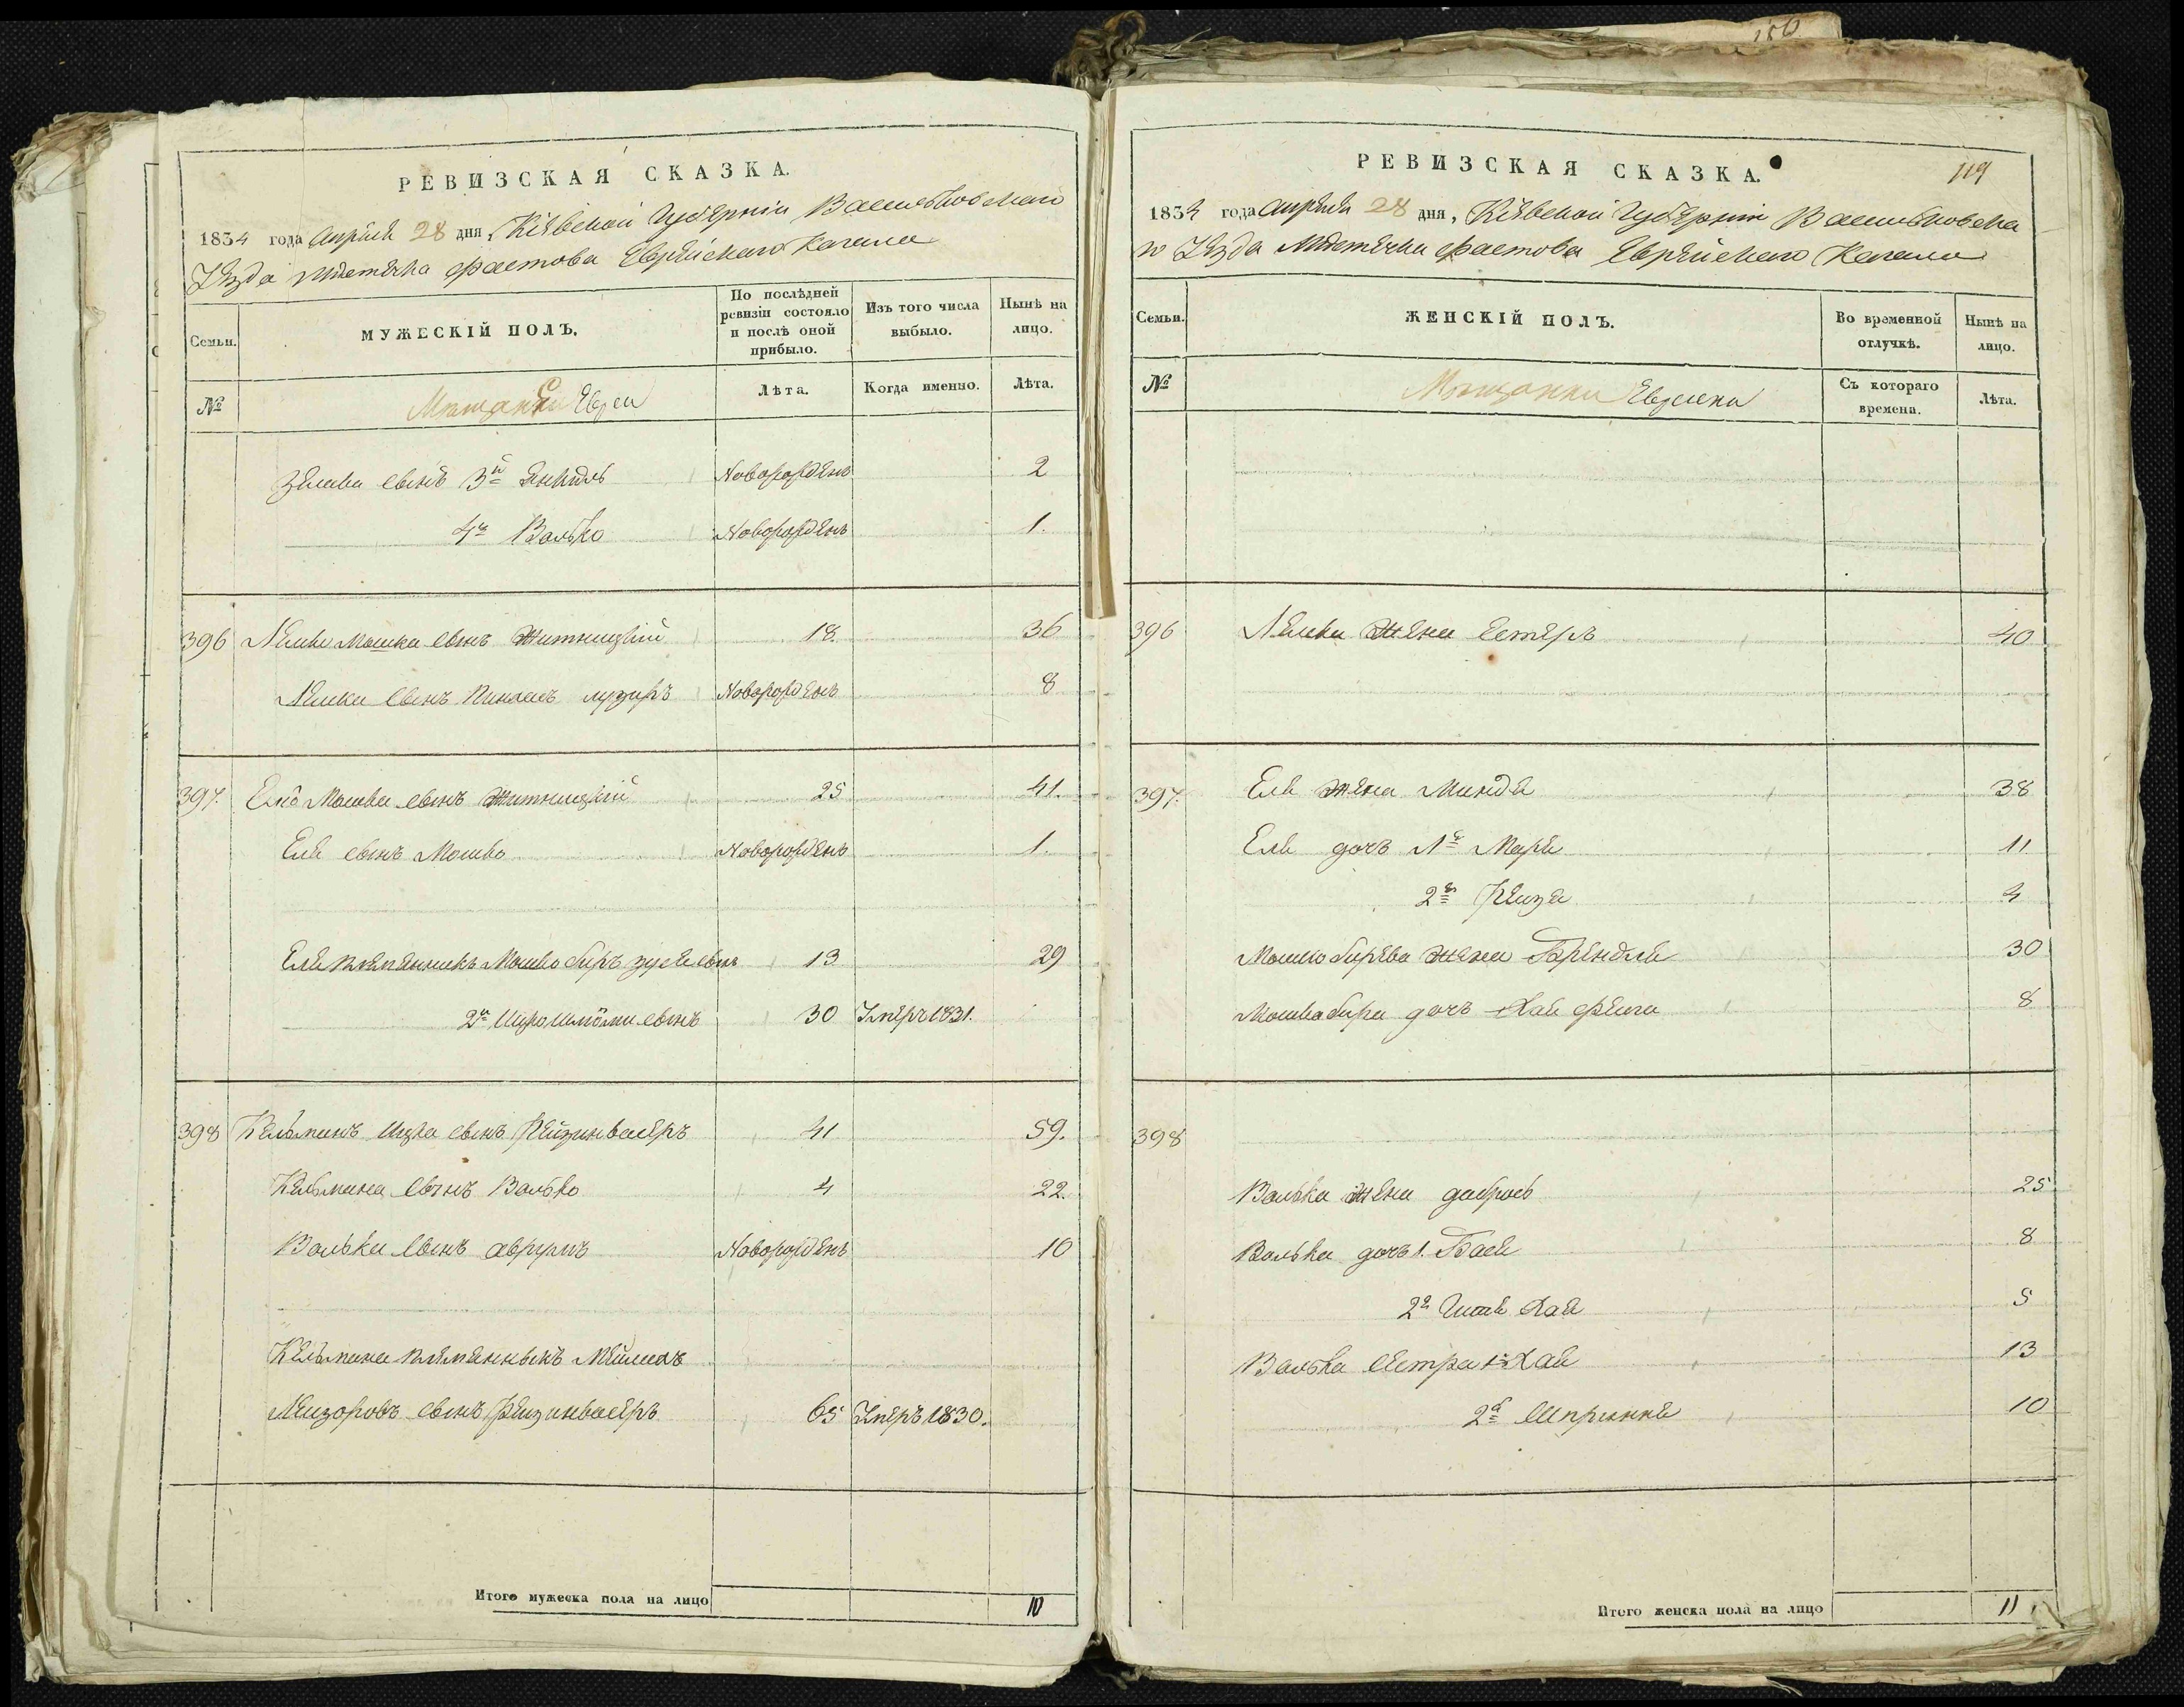 150
РЕВИЗСКАЯ СКАЗКА.
1834 года Апрѣля 28 дня, Кіевской Губерніи Васильковскаго
Уѣзда Мѣстечка Фастова Еврейскаго Кагала
Семьи.
МУЖЕСКІЙ ПОЛЪ.
По послѣдней ревизіи состояло и послѣ оной прибыло.
Изъ того числа выбыло.
Нынѣ на лицо.
№
Мѣщане Евреи
Лѣта.
Когда именно.
Лѣта.
сынъ 3й Янкель Новорожденъ 2
4й Волько Новорожденъ 1.
396 Лейко Мошка сынъ Житницкій 18. 36
Лейки сынъ Пинхасъ Новорожденъ 8
397. Мошки сынъ Житницкій 25 41.
Еля сынъ Мошко Новорожденъ 1.
Еля племянникъ Мошко Беръ сынъ 13 29
2й сынъ 30 Умеръ 1831.
398 Кельманъ Ицка сынъ Рейзинвасеръ 41 59.
Кельмана сынъ Волько 4 22.
Волька сынъ Аврумъ Новорожденъ 10
Кельмана племянникъ
сынъ Рейзинвасеръ 65 Умеръ 1830.
Итого мужеска пола на лицо 10
РЕВИЗСКАЯ СКАЗКА.
119
1834 года Апрѣля 28 дня, Кіевской Губерніи Васильковска
го Уѣзда Мѣстечка Фастова Еврейскаго Кагала
Семьи.
ЖЕНСКІЙ ПОЛЪ.
Во временной отлучкѣ.
Нынѣ на лицо.
№
Мѣщанки Еврейки
Съ котораго времени.
Лѣта.
396 Лейки жена Естеръ 40
397. Еля жена Миндя 38
Еля дочь 1я Маря 11
2я Рейзя 4
Мошко Берева жена Брендля 30
Мошко Бера дочь Хая Фейга 8
398
Волька жена Добрось 25
Волька дочь 1. Бася 8
2я Хая 5
Волька сестра 1я Хая 13
2я Шприння 10
Итого женска пола на лицо 11